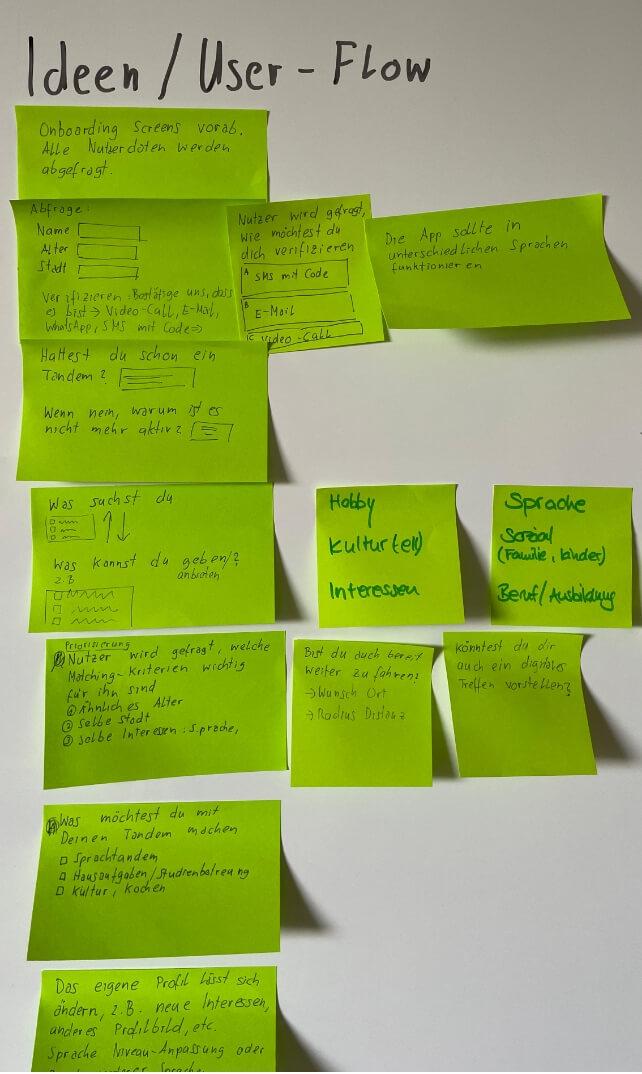 Ideen / User-Flow
Onboarding Screens vorab.
Alle Nutzerdaten werden
abgefragt.
Abfrage:
Name
Alter
Stadt
Verifizieren: Bestätige uns, dass
es bist → Video-Call, E-Mail,
WhatsApp, SMS mit Code ⇒
Nutzer wird gefragt,
wie möchtest du
dich verifizieren
A SMS mit Code
B E-Mail
C Video-Call
Die App sollte in
unterschiedlichen Sprachen
funktionieren
Hattest du schon ein
Tandem?
Wenn nein, warum ist es
nicht mehr aktiv?
Was suchst du
Was kannst du geben/?
z.B anbieten
Hobby
Kultur(ell)
Interessen
Sprache
Sozial
(Familie, Kinder)
Beruf/Ausbildung
Priorisierung
Nutzer wird gefragt, welche
Matching-Kriterien wichtig
für ihn sind
① Ähnliches Alter
② Selbe Stadt
③ selbe Interessen: Sprache,
Bist du auch bereit
weiter zu fahren?
→ Wunsch Ort
→ Radius Distanz
Könntest du dir
auch ein digitales
Treffen vorstellen?
Was möchtest du mit
Deinen Tandem machen
□ Sprachtandem
□ Hausaufgaben/Studienbetreung
□ Kultur, Kochen
Das eigene Profil lässt sich
ändern, z.B. neue Interessen,
anderes Profilbild, etc.
Sprache Niveau-Anpassung oder